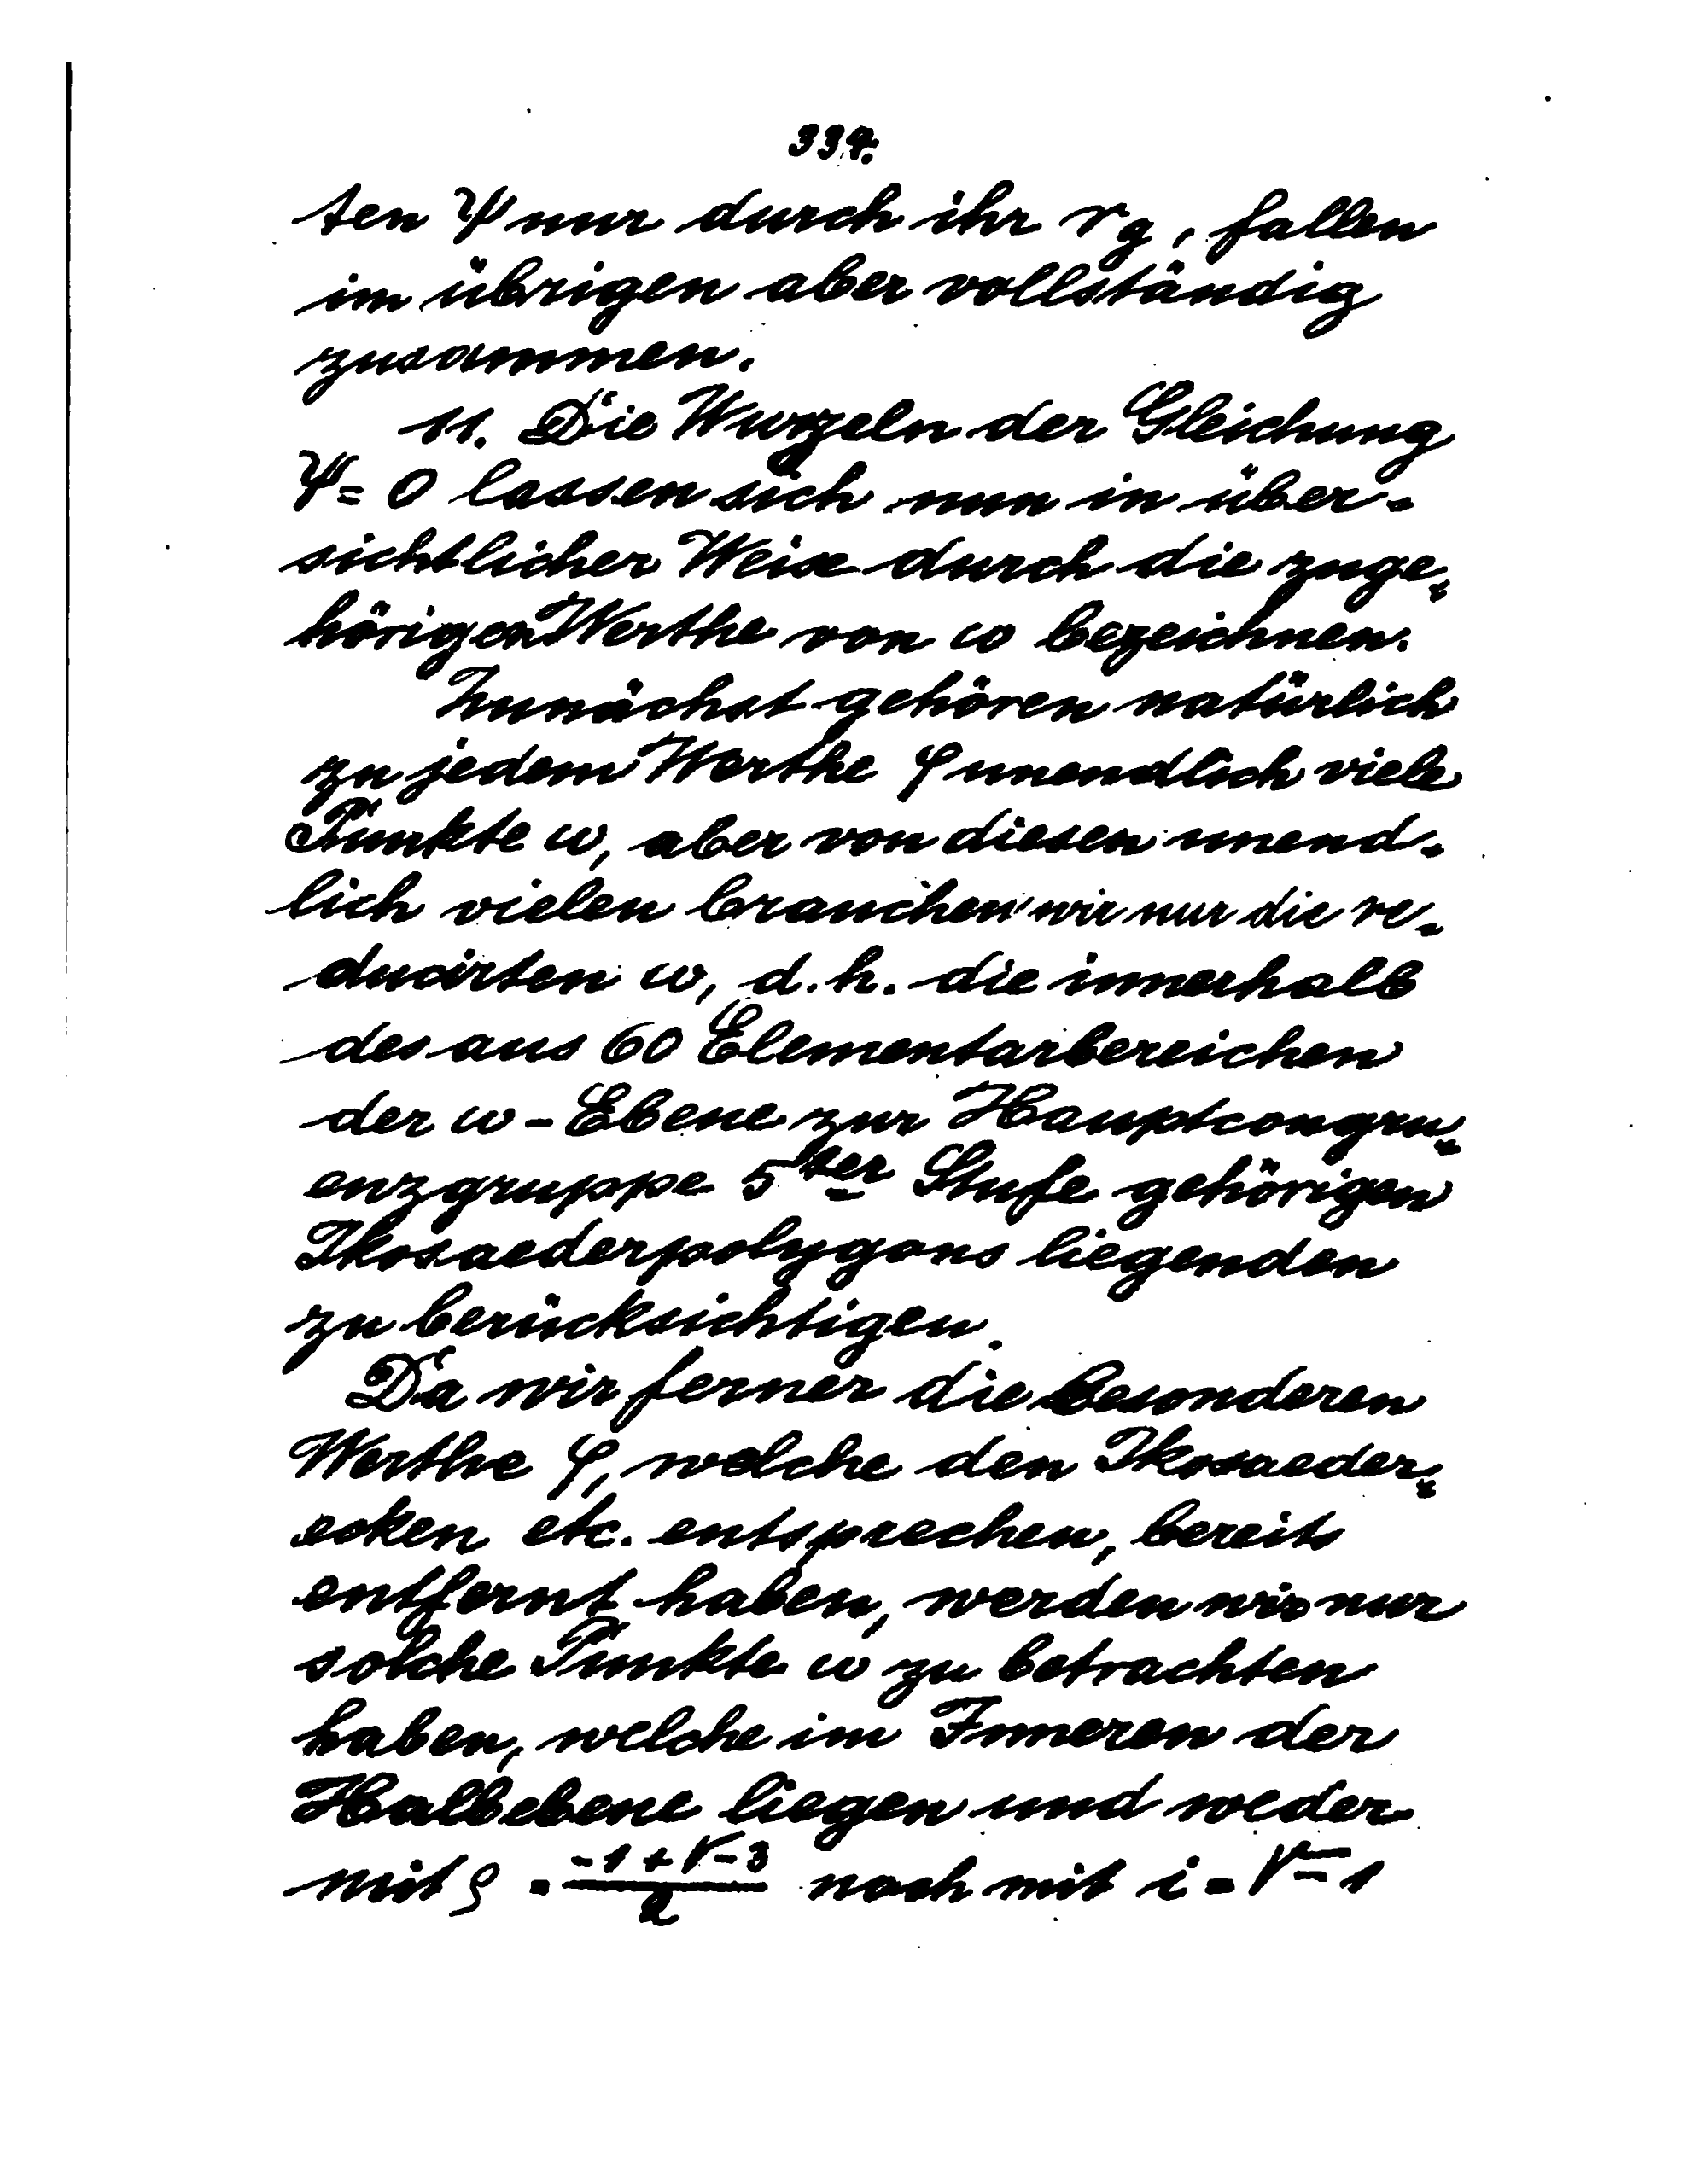 334.
ten Ψ nur durch ihr r_g, fallen
im übrigen aber vollständig
zusammen.
11. Die Wurzeln der Gleichung
Ψ = 0 lassen sich nun in über-
sichtlicher Weise durch die zuge-
hörigen Werthe von ω bezeichnen.
Zunächst gehören natürlich
zu jedem Werthe φ unendlich viele
Punkte ω, aber von diesen unend-
lich vielen brauchen wir nur die re-
ducirten ω, d.h. die innerhalb
des aus 60 Elementarbereichen
der ω-Ebene zur Hauptcongru-
enzgruppe 5ter Stufe gehörigen
Ikosaederpolygons liegenden
zu berücksichtigen.
Da wir ferner die besonderen
Werthe φ, welche den Ikosaeder-
ecken etc. entsprechen, bereits
entfernt haben, werden wir nur
solche Punkte ω zu betrachten
haben, welche im Inneren der
Halbebene liegen und weder
mit ρ = (-1+√-3)/2 noch mit i = √-1